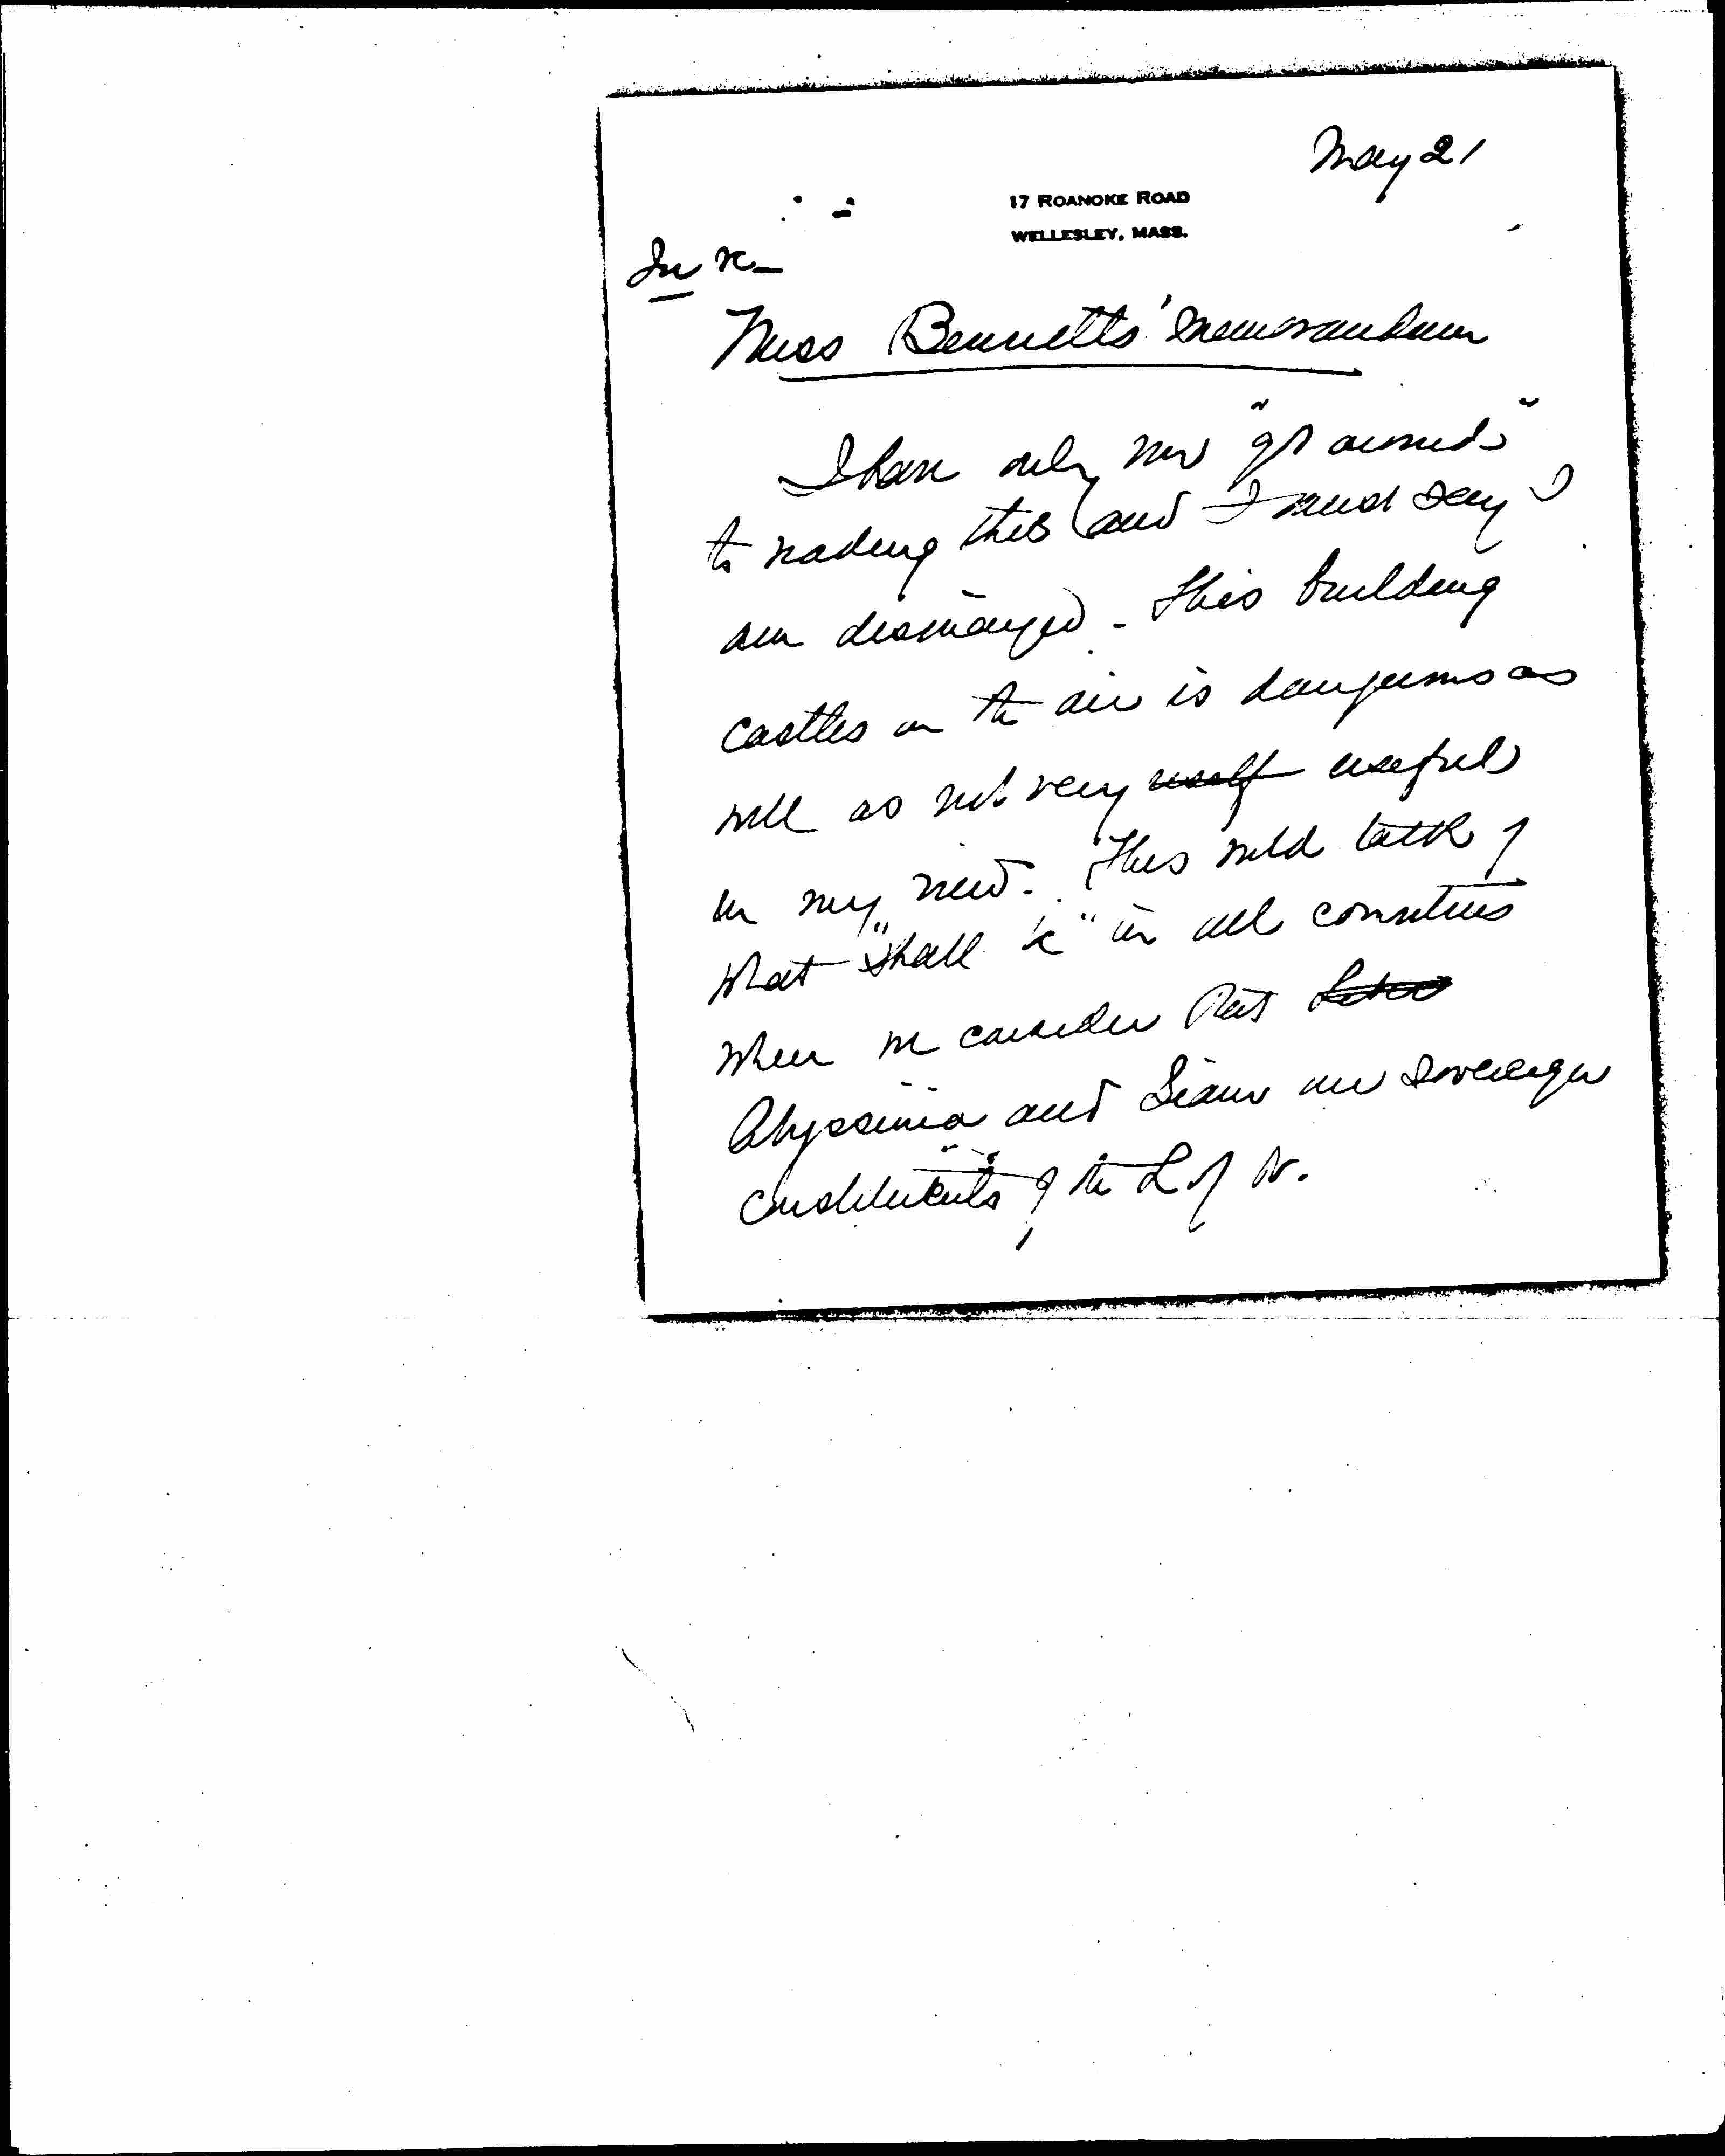 May 21
17 ROANOKE ROAD
WELLESLEY, MASS.
In re—
Miss Bennetts' memorandum
I have only now "got around"
to reading this and I must say I
am dismayed. This building
castles in the air is dangerous as
well as not very useful
in my mind. This wild talk of
what "shall be" in all countries
when we consider that
Abyssinia and Siam are sovereign
constituents of the L of N.